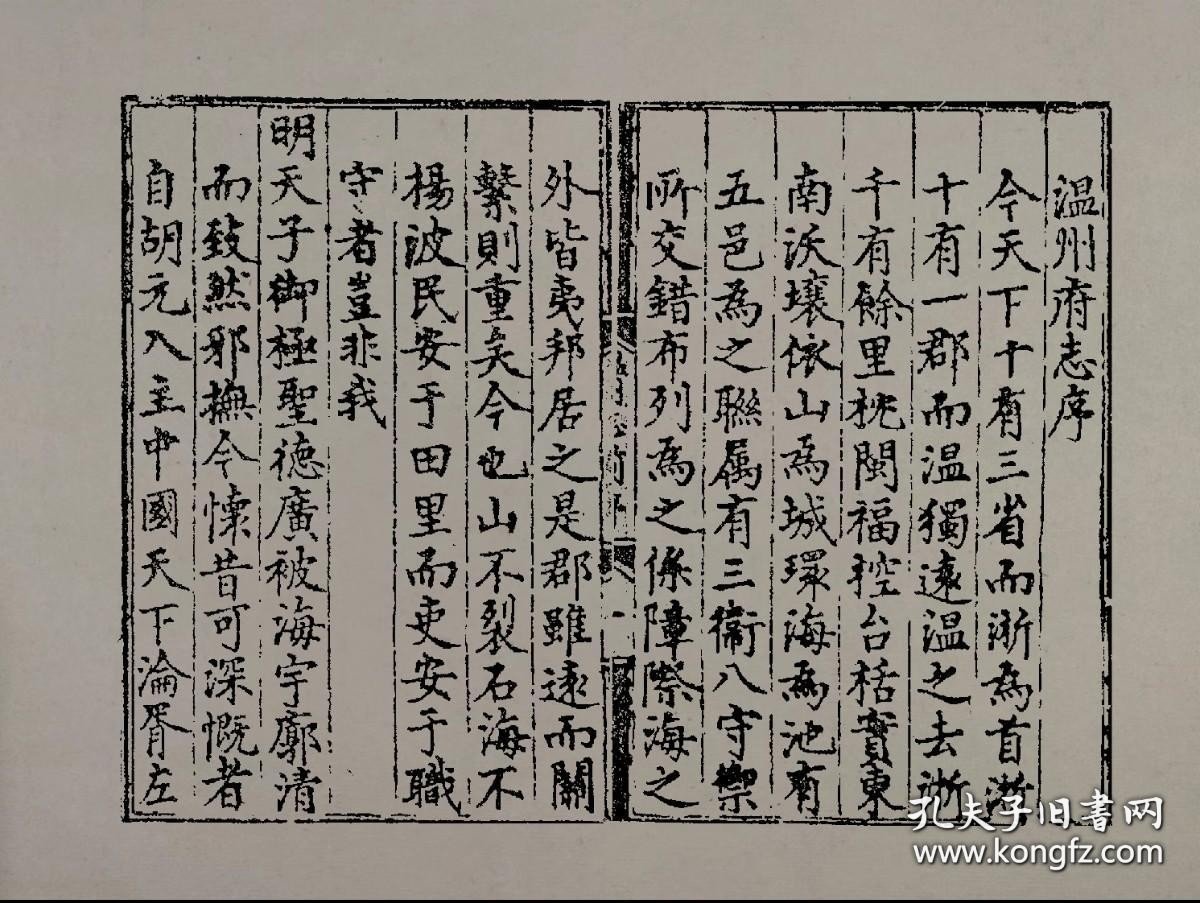 温州府志序
今天下十有三省而浙為首浙
十有一郡而温獨遠温之去浙
千有餘里枕閩福控台栝實東
南沃壤依山為城環海為池有
五邑為之聯属有三衞八守禦
所交錯布列為之保障際海之
外皆夷邦居之是郡雖遠而關
繫則重矣今也山不裂石海不
楊波民安于田里而吏安于職
守者豈非我
明天子御極聖德廣被海宇廓清
而致然邪撫今懷昔可深慨者
自胡元入主中國天下淪胥左
孔夫子旧书网
www.kongfz.com